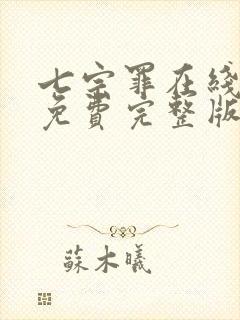 七宗罪在线
免费完整版
蘇木曦